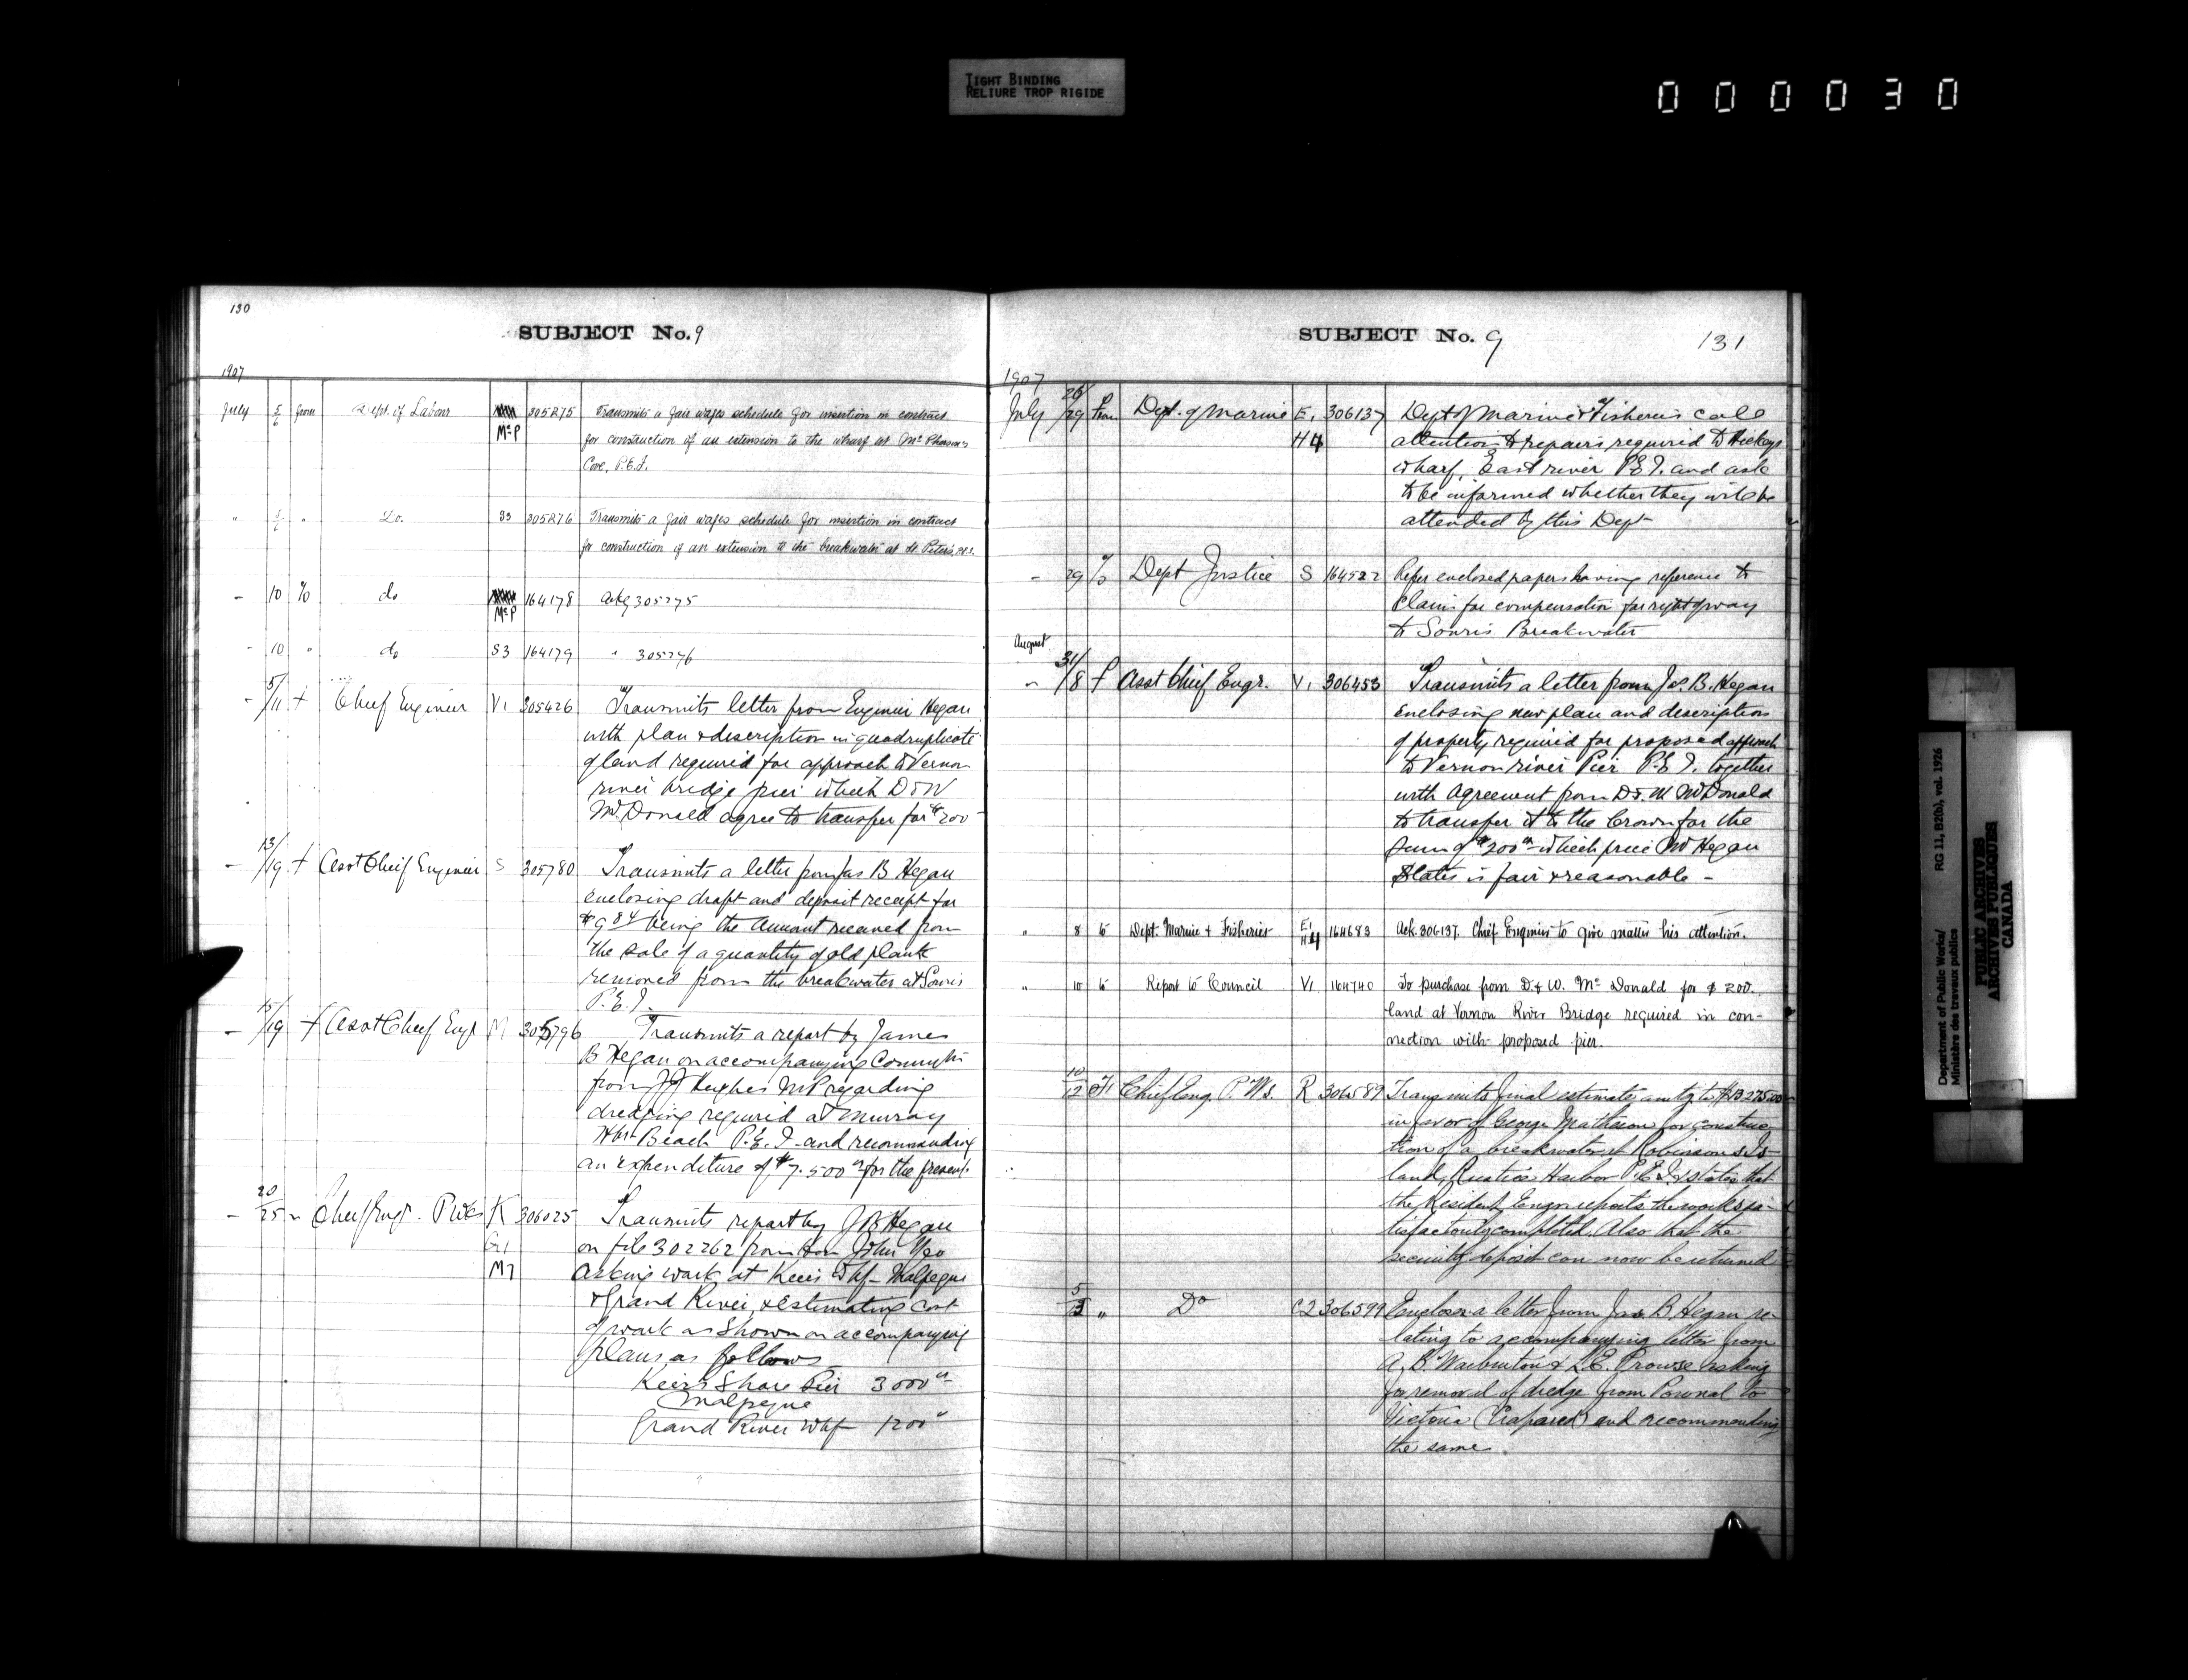 TIGHT BINDING
RELIURE TROP RIGIDE
000030
130
SUBJECT No. 9
1907
July 5/6 from Dept. of Labour McP 305275 Transmits a fair wages schedule for insertion in contract
for construction of an extension to the wharf at McPherson's
Cove, P.E.I.
" 5/6 " Do. S3 305276 Transmits a fair wages schedule for insertion in contract
for construction of an extension to the breakwater at St. Peter's, P.E.I.
- 10 to do McP 164178 Ackg 305275
- 10 " do S3 164179 " 305276
- 5/11 f Chief Engineer V1 305426 Transmits letter from Engineer Hegan
with plan & description in quadruplicate
of land required for approach to Vernon
river bridge pier which D & W
McDonald agree to transfer for $200
- 13/19 f Asst Chief Engineer S 305780 Transmits a letter from Jas B Hegan
enclosing draft and deposit receipt for
$9.84 being the amount received from
the sale of a quantity of old plank
removed from the breakwater at Souris
P.E.I.
- 15/19 f Asst Chief Engr M 305796 Transmits a report by James
B Hegan on accompanying Commctn
from J J Hughes MP regarding
dredging required at Murray
Hbr Beach P.E.I. and recommending
an expenditure of $7.500 for the present.
- 20/25 " Chief Engr. P.Wks K 306025 Transmits report by J B Hegan
G1 on file 302262 from Hon John Yeo
M7 asking work at Keirs Whf - Malpeque
& Grand River, & estimating cost
of work as shown on accompanying
plans, as follows
Keir's Shore Pier 3000
Malpeque
Grand River Whf 1200
SUBJECT No. 9
131
1907
July 26/29 from Dept. of Marine E1 306137 Dept of Marine & Fisheries call
H4 attention to repairs required to Hickeys
wharf, East river P.E.I. and ask
to be informed whether they will be
attended by this Dept
- 29 to Dept Justice S 164522 Refer enclosed papers having reference to
claim for compensation for right of way
to Souris Breakwater
August
" 31/8 f Asst Chief Engr. V1 306453 Transmits a letter from Jas. B. Hegan
enclosing new plan and description
of property required for proposed approach
to Vernon river Pier P.E.I. together
with Agreement from D & W McDonald
to transfer it to the Crown for the
sum of $200 which price Mr Hegan
states is fair & reasonable -
" 8 to Dept. Marine & Fisheries E1 H4 164683 Ack. 306137. Chief Engineer to give matter his attention.
" 10 to Report to Council V1 164740 To purchase from D. & W. McDonald for $200.
land at Vernon River Bridge required in con-
nection with proposed pier.
10/12 Chief Eng. P.Ws. R 306589 Transmits final estimate amtg to $13275.00
in favor of George Matheson for construc-
tion of a breakwater at Robinson's Is-
land, Rustico Harbor P.E.I. & states that
the Resident Engnr reports the works sa-
tisfactorily completed. Also that the
security deposit can now be returned
5/ " Do C2 306599 Encloses a letter from Jas B Hegan re-
lating to accompanying letter from
A. B. Warburton & L. E. Prowse asking
for removal of dredge from Pownal to
Victoria (Crapaud) and recommending
the same.
Department of Public Works/ RG 11, B2(b), vol. 1926
Ministère des travaux publics
PUBLIC ARCHIVES
ARCHIVES PUBLIQUES
CANADA